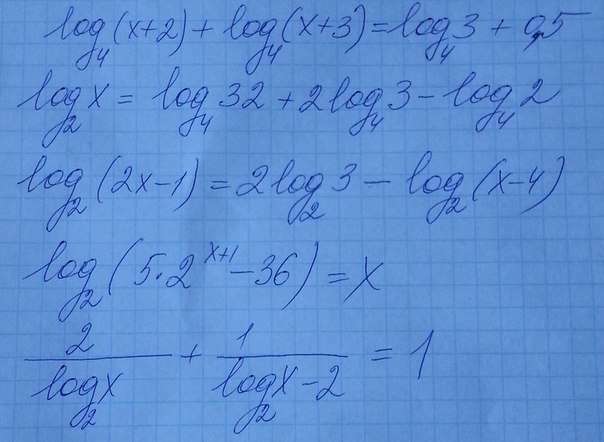 log₄(x+2) + log₄(x+3) = log₄3 + 0,5
log₂x = log₄32 + 2log₄3 - log₄2
log₂(2x-1) = 2log₂3 - log₂(x-4)
log₂(5·2^(x+1) - 36) = x
2/(log₂x) + 1/(log₂x - 2) = 1